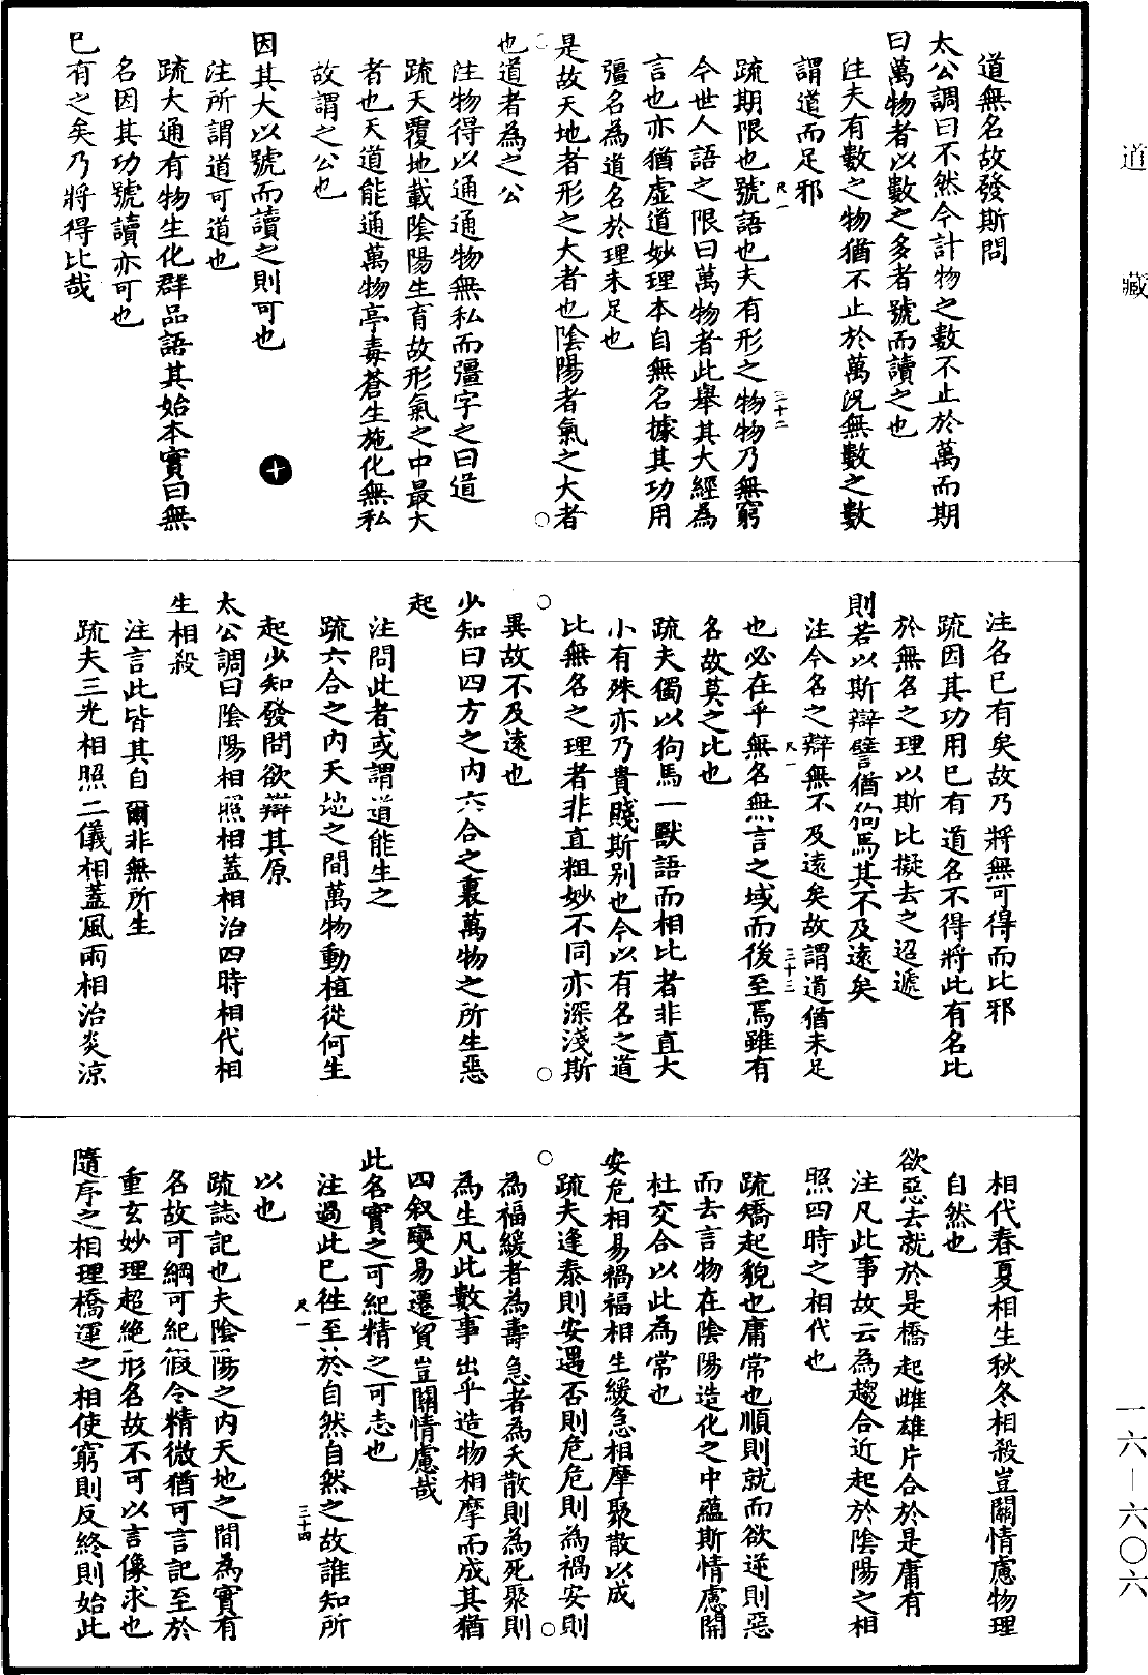 道藏
一六—六〇六
道無名故發斯問
太公調曰不然今計物之數不止於萬而期
曰萬物者以數之多者號而讀之也
注夫有數之物猶不止於萬況無數之數
謂道而足邪
尺一
三十二
疏期限也號語也夫有形之物物乃無窮
今世人語之限曰萬物者此舉其大經為
言也亦猶虛道妙理本自無名據其功用
彊名為道名於理未足也
是故天地者形之大者也陰陽者氣之大者
也道者為之公
注物得以通通物無私而彊字之曰道
疏天覆地載陰陽生育故形氣之中最大
者也天道能通萬物亭毒蒼生施化無私
故謂之公也
因其大以號而讀之則可也
十
注所謂道可道也
疏大通有物生化群品語其始本實曰無
名因其功號讀亦可也
巳有之矣乃將得比哉
注名巳有矣故乃將無可得而比邪
疏因其功用巳有道名不得將此有名比
於無名之理以斯比擬去之迢遞
則若以斯辯譬猶狗馬其不及遠矣
注今名之辯無不及遠矣故謂道猶未足
尺一
三十三
也必在乎無名無言之域而後至焉雖有
名故莫之比也
疏夫獨以狗馬一獸語而相比者非直大
小有殊亦乃貴賤斯別也今以有名之道
比無名之理者非直粗妙不同亦深淺斯
異故不及遠也
少知曰四方之內六合之裏萬物之所生惡
起
注問此者或謂道能生之
疏六合之內天地之間萬物動植從何生
起少知發問欲辯其原
太公調曰陰陽相照相蓋相治四時相代相
生相殺
注言此皆其自爾非無所生
疏夫三光相照二儀相蓋風雨相治炎涼
相代春夏相生秋冬相殺豈關情慮物理
自然也
欲惡去就於是橋起雌雄片合於是庸有
注凡此事故云為趨合近起於陰陽之相
照四時之相代也
疏矯起貌也庸常也順則就而欲逆則惡
而去言物在陰陽造化之中蘊斯情慮開
杜交合以此為常也
安危相易禍福相生緩急相摩聚散以成
疏夫逢泰則安遇否則危危則為禍安則
為福緩者為壽急者為夭散則為死聚則
為生凡此數事出乎造物相摩而成其猶
四叙變易遷貿豈關情慮哉
此名實之可紀精之可志也
注過此巳徃至於自然自然之故誰知所
尺一
三十四
以也
疏誌記也夫陰陽之內天地之間為實有
名故可綱可紀假令精微猶可言記至於
重玄妙理超絶形名故不可以言像求也
隨序之相理橋運之相使窮則反終則始此